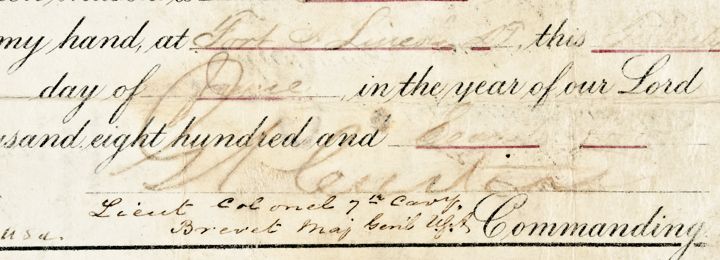 my hand, at Fort A Lincoln DT, this
day of June in the year of our Lord
usand eight hundred and
GACuster
Lieut Colonel 7th Cavy.
usa. Brevet Maj Genl USA Commanding